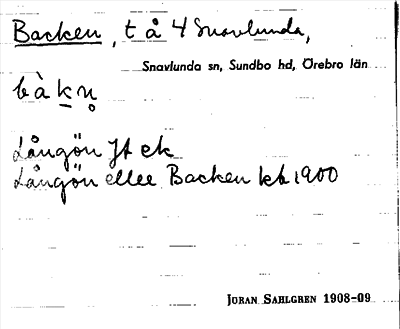 Backen, t å 4 Snavlunda,
Snavlunda sn, Sundbo hd, Örebro län
bàkn̥
Långön Jt ek
Långön eller Backen kk 1900
JÖRAN SAHLGREN 1908-09